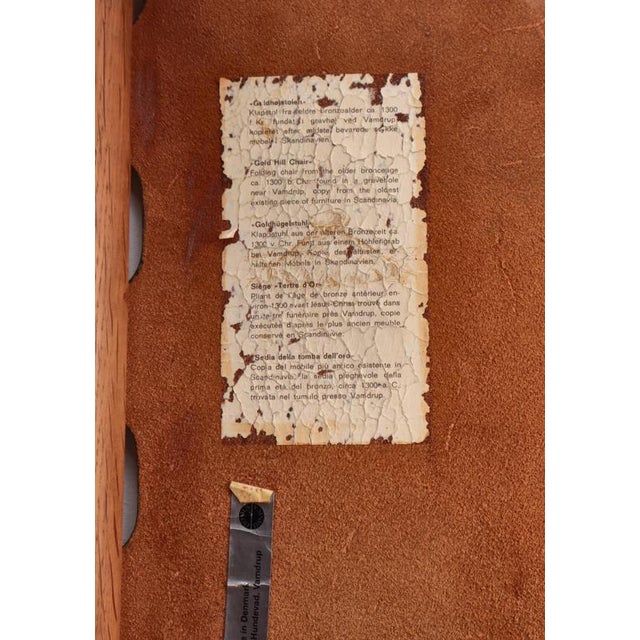 »Guldhøjstolen«
Klapstol fra ældre bronzealder ca. 1300
f. Kr. fundet i gravhøj ved Vamdrup,
kopieret efter ældste bevarede
møbel i Skandinavien.
»Gold Hill Chair«
Folding chair from the older bronceage
ca. 1300 b. Chr. found in a gravehole
near Vamdrup, copy from the oldest
existing piece of furniture in Scandinavia.
»Goldhügelstuhl«
Klappstuhl aus der älteren Bronzezeit ca.
1300 v. Chr. Fund aus einem Höhlengrab
bei Vamdrup, Kopie des ältesten, er-
haltenen Möbels in Skandinavien.
Siège »Tertre d'Or«
Pliant de l'âge de bronze antérieur en-
viron 1300 avant Jésus-Christ trouvé dans
un tertre funéraire près Vamdrup, copie
exécutée d'après le plus ancien meuble
conservé en Scandinavie.
»Sedia della tomba dell'oro«
Copia del mobile più antico esistente in
Scandinavia, la sedia pieghevole della
prima età del bronzo, circa 1300 a. C.
trovata nel tumulo presso Vamdrup.
in Denmark
Hundevad, Vamdrup